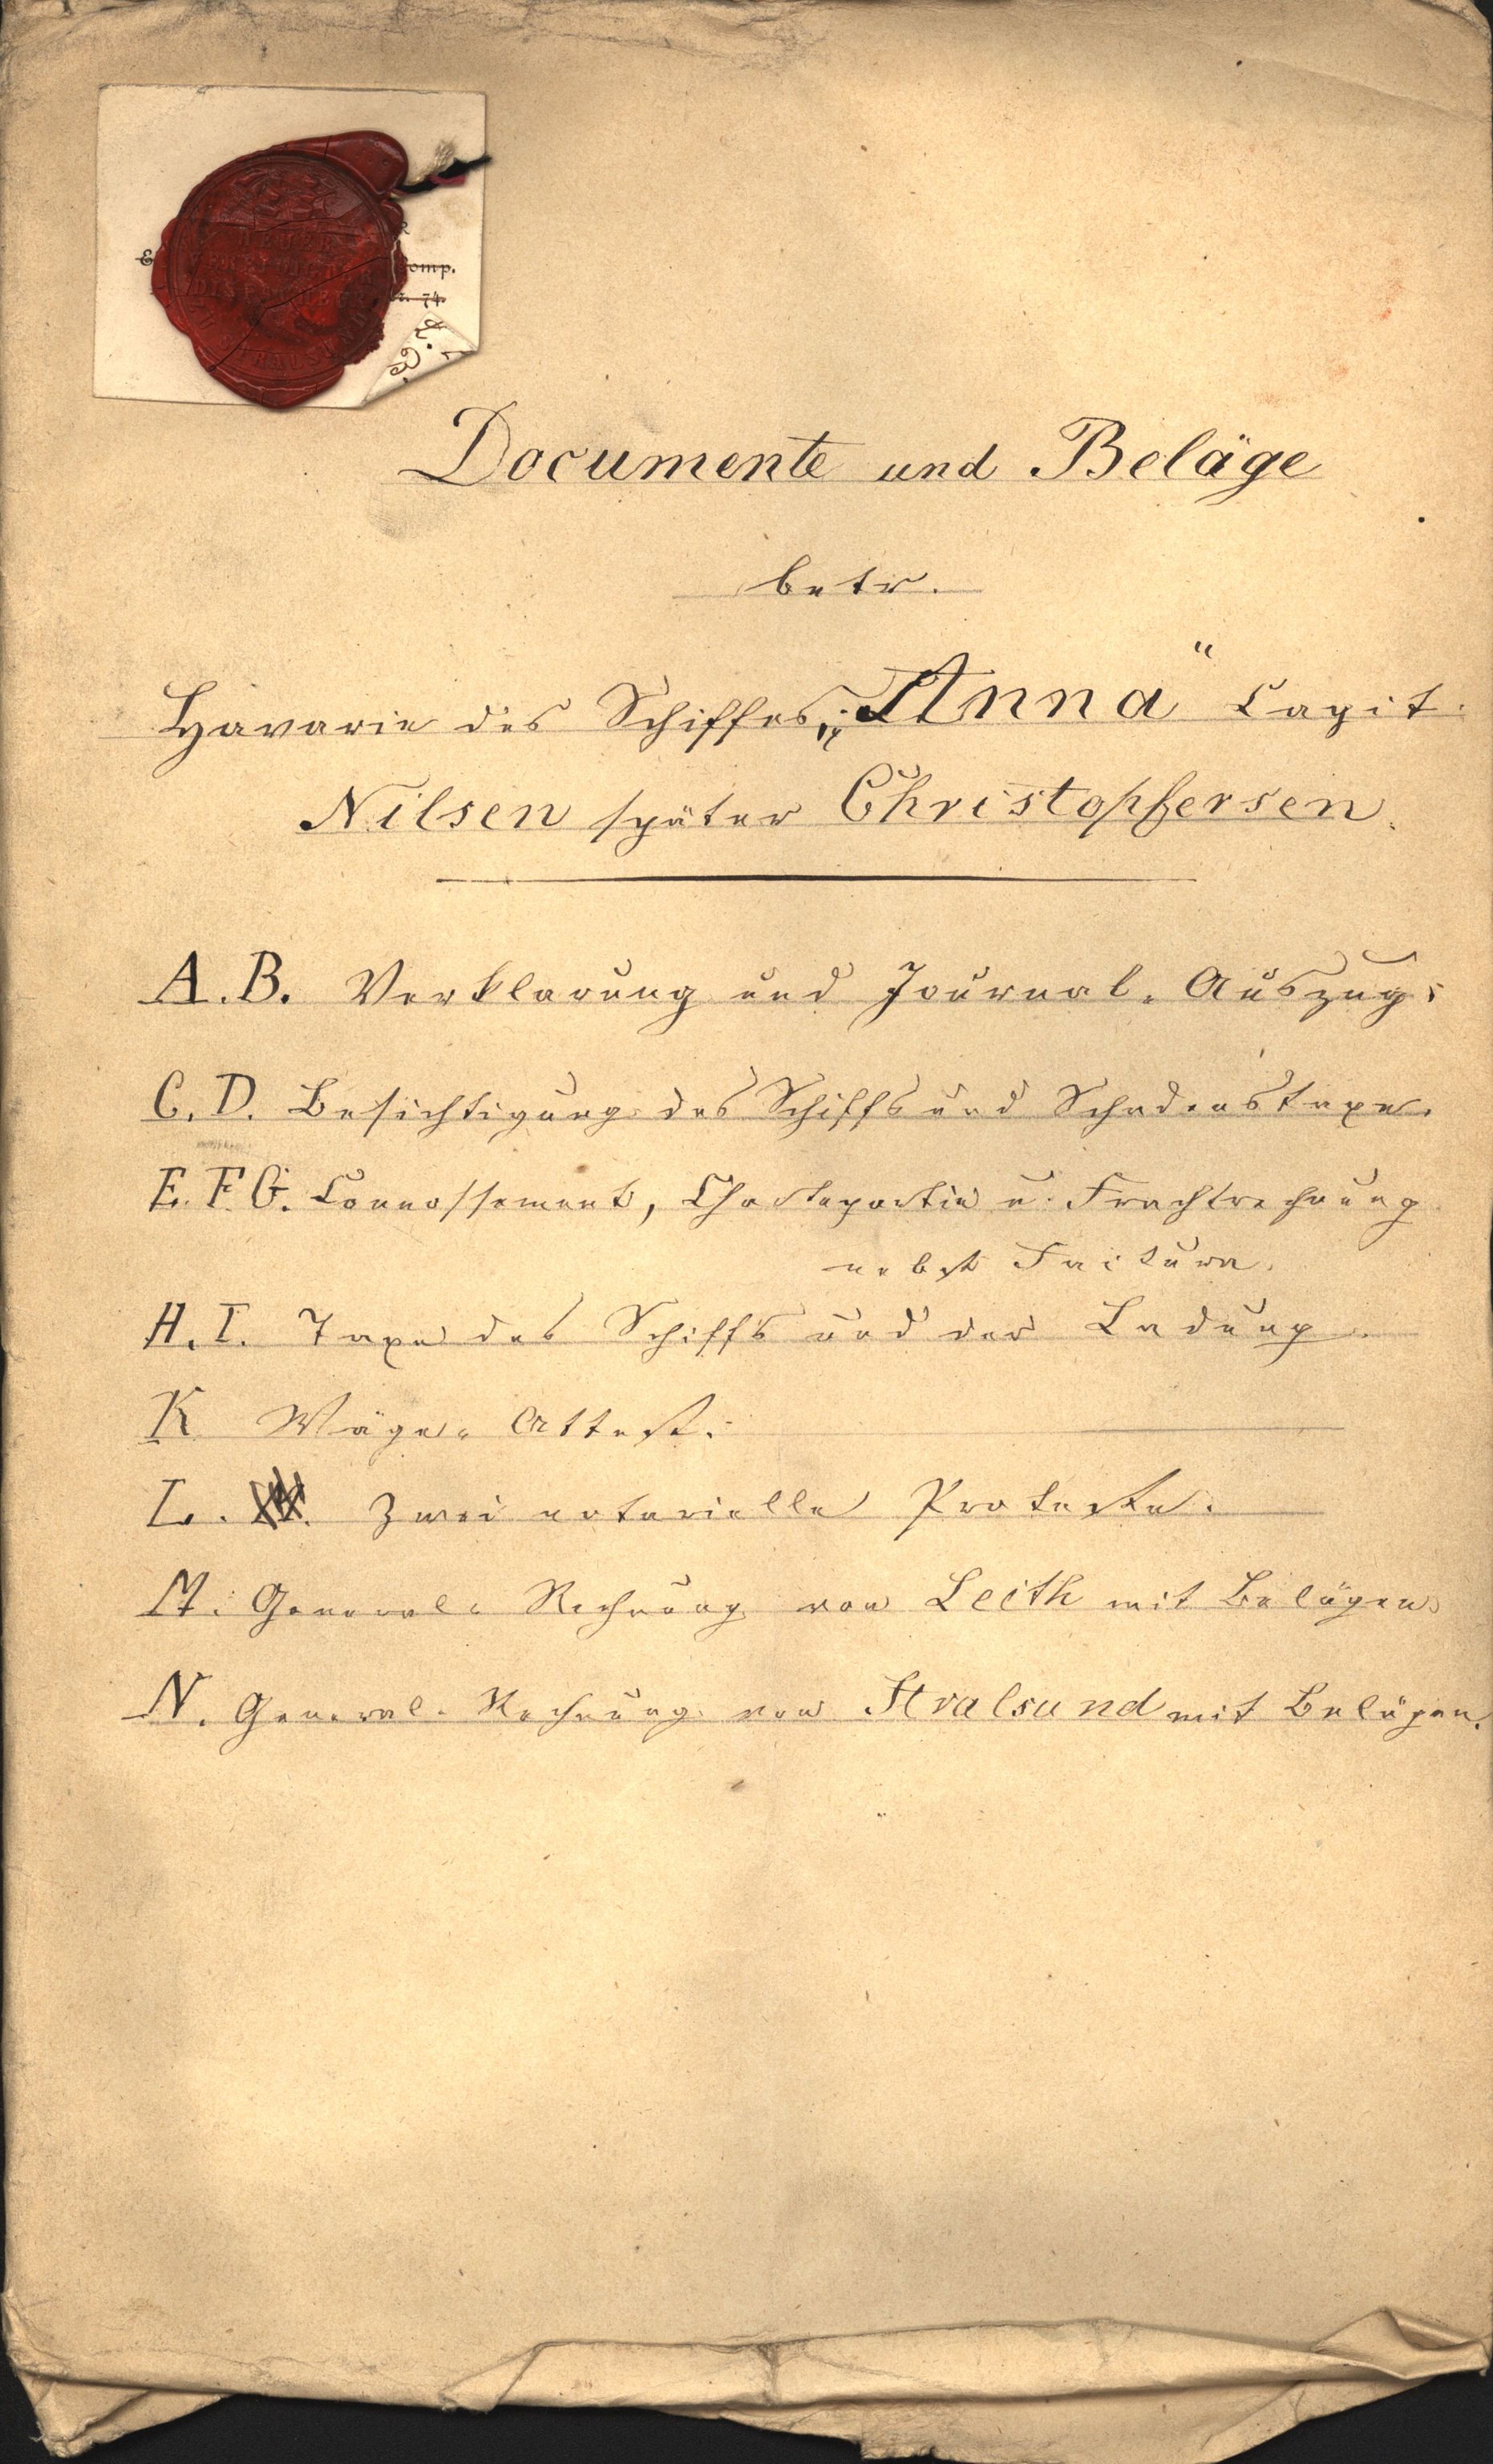 omp.
74.
& Co.
Documente und Beläge
betr.
Havarie des Schiffes „Anna“ Capit.
Nilsen später Christophersen.
A. B. Verklarung und Journal-Auszug.
C. D. Besichtigung des Schiffs und Schadenstaxe.
E. F. G. Connossement, Chartepartie u. Frachtrechnung
nebst Factura.
H. I. Taxe des Schiffs und der Ladung.
K Wäge-Attest.
L. Zwei notarielle Proteste.
M. General-Rechnung von Leith mit Belägen.
N. General-Rechnung von Stralsund mit Belägen.